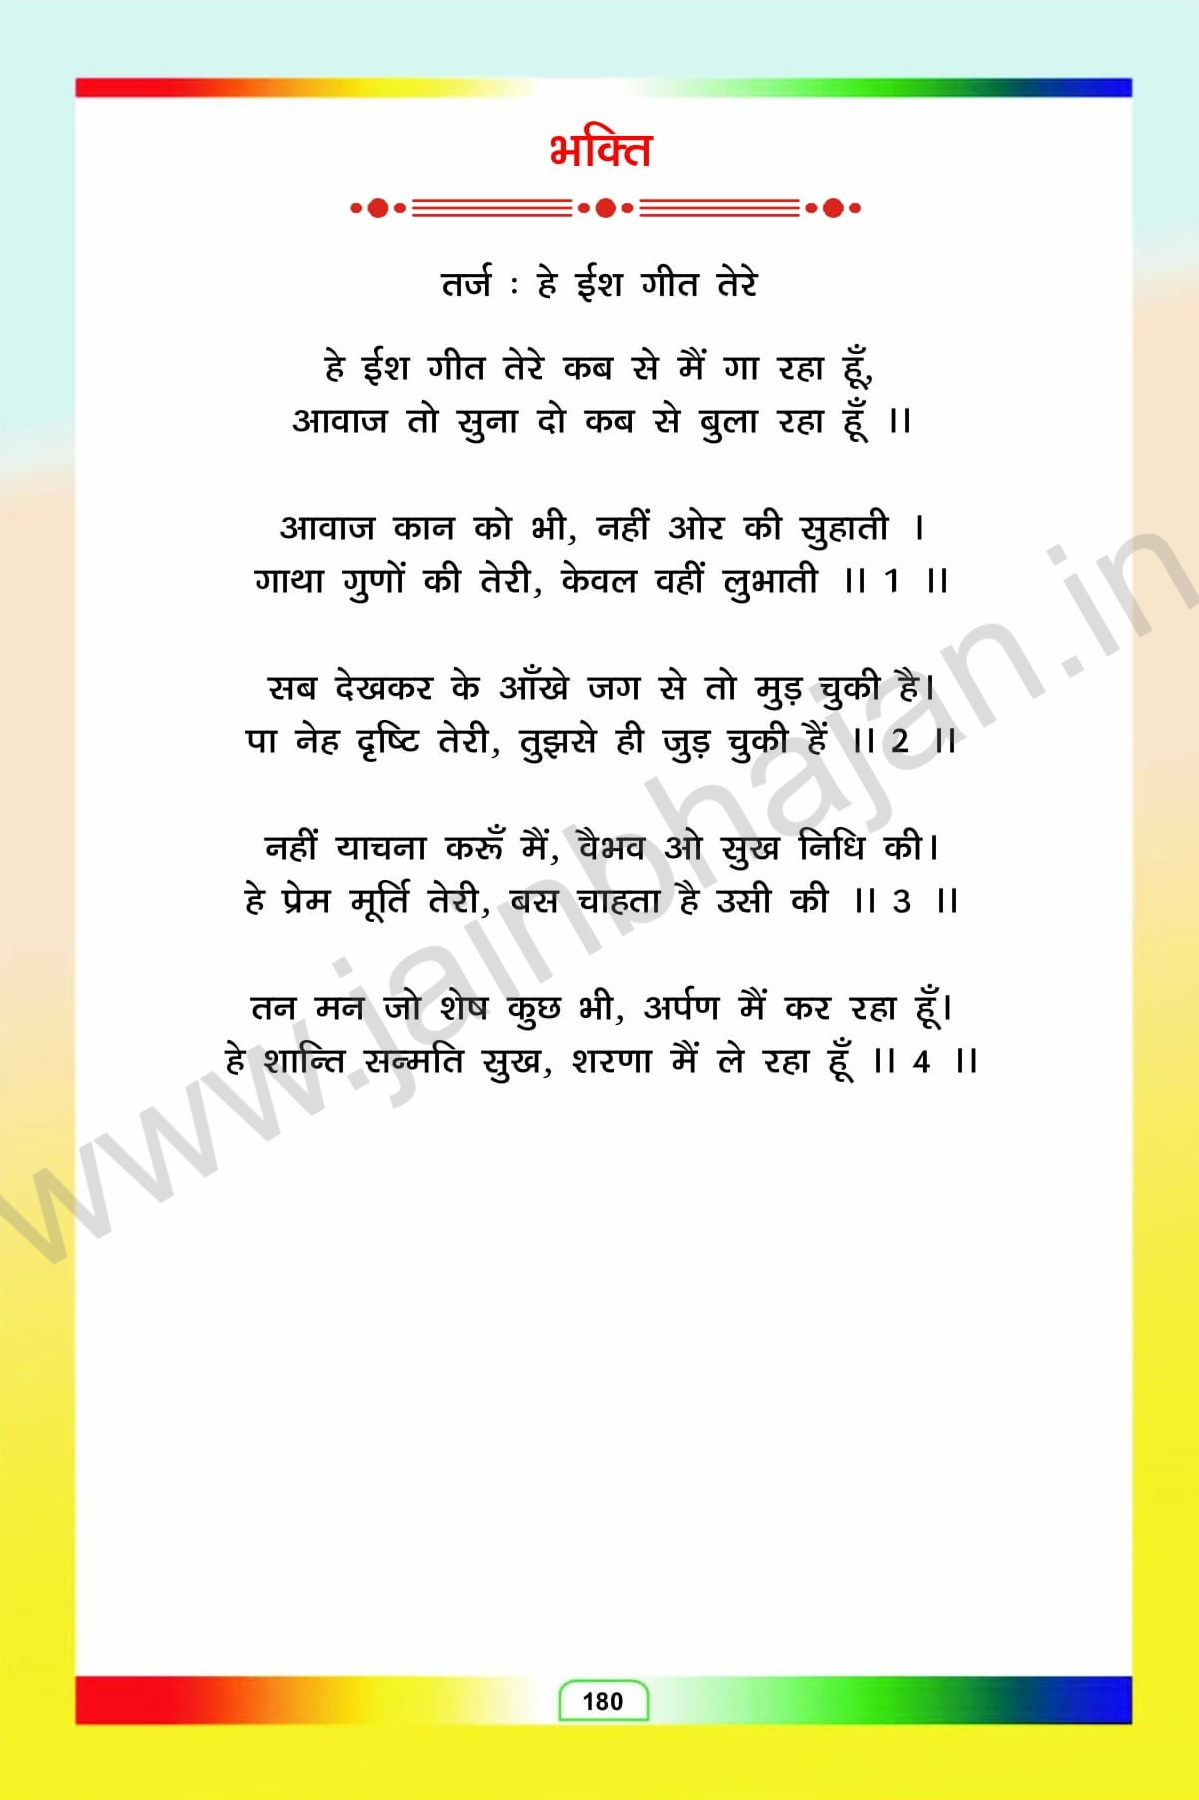 भक्ति
तर्ज : हे ईश गीत तेरे
हे ईश गीत तेरे कब से मैं गा रहा हूँ,
आवाज तो सुना दो कब से बुला रहा हूँ ।।
आवाज कान को भी, नहीं ओर की सुहाती ।
गाथा गुणों की तेरी, केवल वहीं लुभाती ।। 1 ।।
सब देखकर के आँखे जग से तो मुड़ चुकी है।
पा नेह दृष्टि तेरी, तुझसे ही जुड़ चुकी हैं ।। 2 ।।
नहीं याचना करूँ मैं, वैभव ओ सुख निधि की।
हे प्रेम मूर्ति तेरी, बस चाहता है उसी की ।। 3 ।।
तन मन जो शेष कुछ भी, अर्पण मैं कर रहा हूँ।
हे शान्ति सन्मति सुख, शरणा मैं ले रहा हूँ ।। 4 ।।
www.jainbhajan.in
180